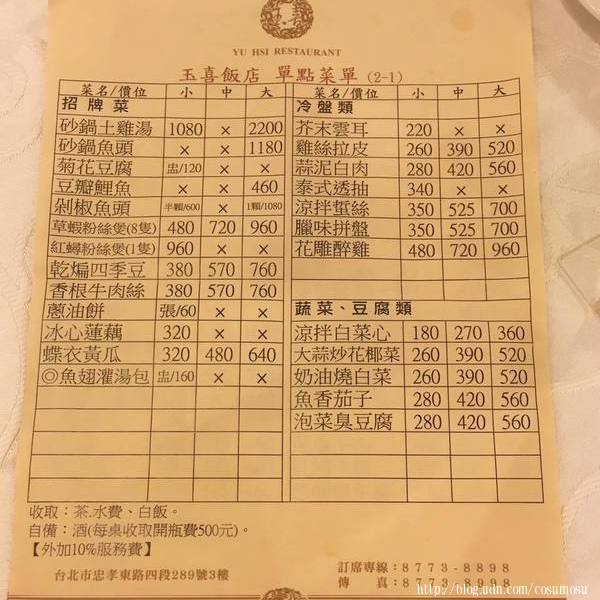 YU HSI RESTAURANT
玉喜飯店 單點菜單 (2-1)
菜名/價位 小 中 大
招牌菜
砂鍋土雞湯 1080 × 2200
砂鍋魚頭 × × 1180
菊花豆腐 盅/120 × ×
豆瓣鯉魚 × × 460
剁椒魚頭 半顆/600 × 1顆/1080
草蝦粉絲煲(8隻) 480 720 960
紅蟳粉絲煲(1隻) 960 × ×
乾煸四季豆 380 570 760
香根牛肉絲 380 570 760
蔥油餅 張/60 × ×
冰心蓮藕 320 × ×
蝶衣黃瓜 320 480 640
◎魚翅灌湯包 盅/160 × ×
菜名/價位 小 中 大
冷盤類
芥末雲耳 220 × ×
雞絲拉皮 260 390 520
蒜泥白肉 280 420 560
泰式透抽 340 × ×
涼拌蜇絲 350 525 700
臘味拼盤 350 525 700
花雕醉雞 480 720 960
蔬菜、豆腐類
涼拌白菜心 180 270 360
大蒜炒花椰菜 260 390 520
奶油燒白菜 260 390 520
魚香茄子 280 420 560
泡菜臭豆腐 280 420 560
收取：茶.水費、白飯。
自備：酒(每桌收取開瓶費500元)。
【外加10%服務費】
台北市忠孝東路四段289號3樓
訂席專線：8773-8898
傳 真：8773-8998
http://blog.udn.com/cosumosu